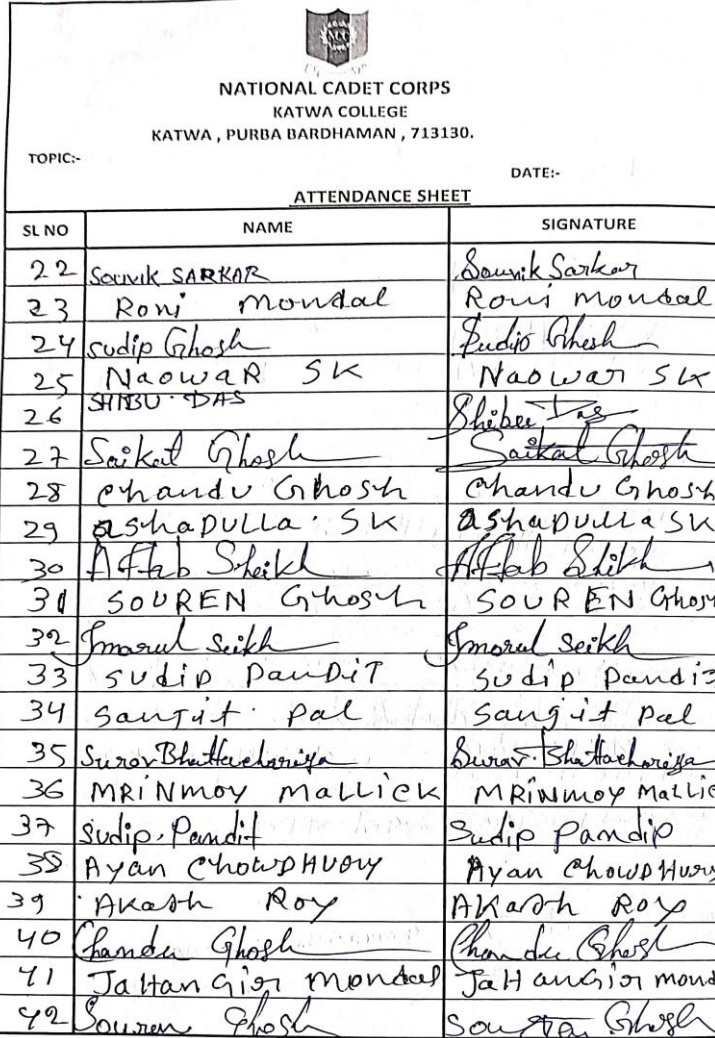 NCC
NATIONAL CADET CORPS
KATWA COLLEGE
KATWA , PURBA BARDHAMAN , 713130.
TOPIC:-
DATE:-
ATTENDANCE SHEET
SL NO NAME SIGNATURE
22 Souvik SARKAR Souvik Sarkar
23 Roni Mondal Roni Mondal
24 Sudip Ghosh Sudip Ghosh
25 NaowaR SK Naowar SK
26 SHIBU DAS Shibu Das
27 Saikat Ghosh Saikat Ghosh
28 Chandu Ghosh Chandu Ghosh
29 ashaDULLA SK ashaDULLa SK
30 Aftab Sheikh Aftab Shikh
31 SOUREN Ghosh SOUREN Ghosh
32 Imorul Seikh Imorul Seikh
33 Sudip PanDiT Sudip Pandit
34 Sangit Pal Sangit Pal
35 Surav Bhattachariya Surav Bhattachariya
36 MRiNmoy MaLLiCK MRiNmoy MaLLiC
37 Sudip Pandit Sudip Pandip
38 Ayan ChowDHUOry Ayan ChowDHury
39 AKash Roy AKash Roy
40 Chandu Ghosh Chandu Ghosh
41 JaHanGir Mondal JaHanGir Mond
42 Souren Ghosh Ghosh